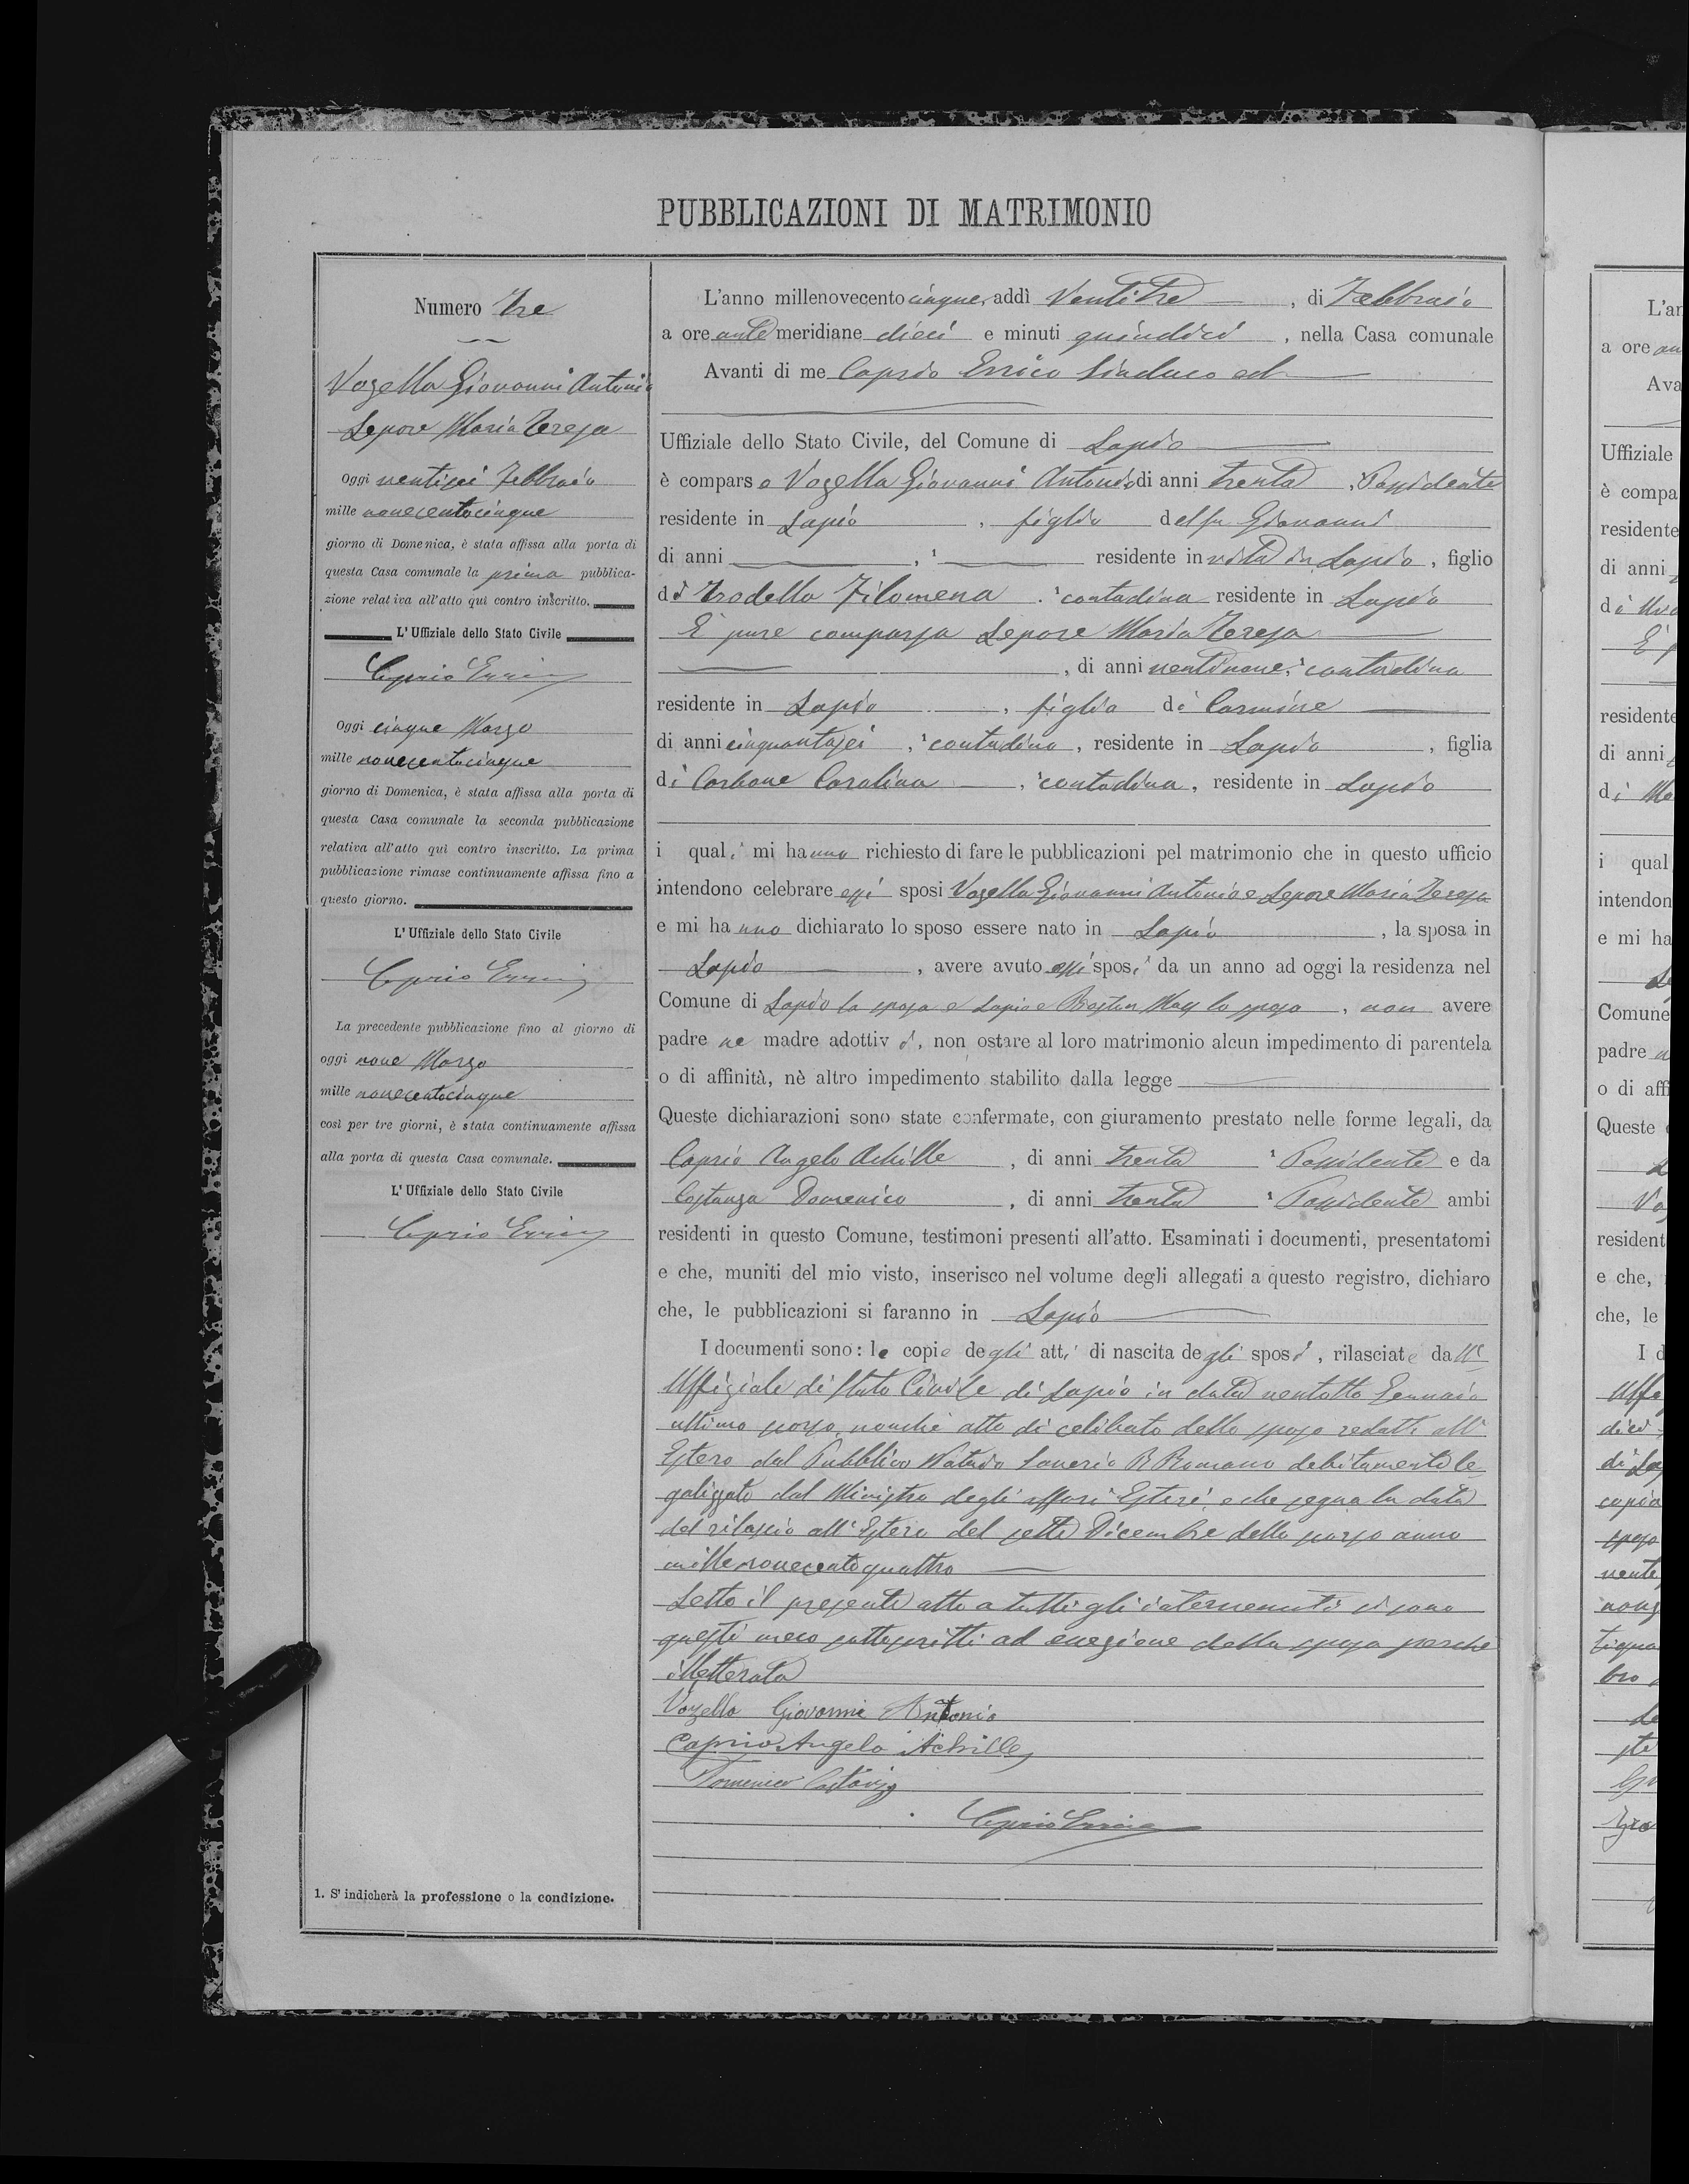 PUBBLICAZIONI DI MATRIMONIO
Numero Tre
Vozella Giovanni Antonio
Lepore Maria Teresa
Oggi ventisei Febbraio
mille novecentocinque
giorno di Domenica, è stata affissa alla porta di
questa Casa comunale la prima pubblica-
zione relativa all'atto quì contro inscritto.
L'Uffiziale dello Stato Civile
Caprio Errico
Oggi cinque Marzo
mille novecentocinque
giorno di Domenica, è stata affissa alla porta di
questa Casa comunale la seconda pubblicazione
relativa all'atto quì contro inscritto. La prima
pubblicazione rimase continuamente affissa fino a
questo giorno.
L'Uffiziale dello Stato Civile
Caprio Errico
La precedente pubblicazione fino al giorno di
oggi nove Marzo
mille novecentocinque
così per tre giorni, è stata continuamente affissa
alla porta di questa Casa comunale.
L'Uffiziale dello Stato Civile
Caprio Errico
1. S'indicherà la professione o la condizione.
L'anno millenovecentocinque, addì Ventitre, di Febbraio
a ore antemeridiane dieci e minuti quindici, nella Casa comunale
Avanti di me Caprio Errico Sindaco ed
Uffiziale dello Stato Civile, del Comune di Lapio
è comparso Vozella Giovanni Antonio di anni trenta, Possidente
residente in Lapio, figlio del fu Giovanni
di anni , residente in vita in Lapio, figlio
di Trodella Filomena, contadina residente in Lapio
E' pure comparsa Lepore Maria Teresa
, di anni ventinove, contadina
residente in Lapio, figlia di Carmine
di anni cinquantasei, contadino, residente in Lapio, figlia
di Carbone Carolina, contadina, residente in Lapio
i quali mi hanno richiesto di fare le pubblicazioni pel matrimonio che in questo ufficio
intendono celebrare essi sposi Vozella Giovanni Antonio e Lepore Maria Teresa
e mi hanno dichiarato lo sposo essere nato in Lapio, la sposa in
Lapio, avere avuto essi sposi da un anno ad oggi la residenza nel
Comune di Lapio la sposa e Lapio e Boston Mass lo sposo, non avere
padre ne madre adottivi, non ostare al loro matrimonio alcun impedimento di parentela
o di affinità, nè altro impedimento stabilito dalla legge
Queste dichiarazioni sono state confermate, con giuramento prestato nelle forme legali, da
Caprio Angelo Achille, di anni trenta Possidente e da
Costanza Domenico, di anni trenta Possidente ambi
residenti in questo Comune, testimoni presenti all'atto. Esaminati i documenti, presentatomi
e che, muniti del mio visto, inserisco nel volume degli allegati a questo registro, dichiaro
che, le pubblicazioni si faranno in Lapio
I documenti sono: le copie degli atti di nascita degli sposi, rilasciate dall'
Uffiziale di Stato Civile di Lapio in data ventotto Gennaio
ultimo scorso, nonchè atto di celibato dello sposo redatto all'
Estero dal Pubblico Notaio Saverio R Romano debitamente le
galizzato dal Ministro degli affari Esteri e che segna la data
del rilascio all'Estero del sette Dicembre dello scorso anno
millenovecentoquattro
Letto il presente atto a tutti gli intervenuti si sono
questi meco sottoscritti ad eccezione della sposa perchè
illetterata
Vozella Giovanni Antonio
Caprio Angelo Achille
Domenico Costanza
Caprio Errico
L'an
a ore an
Ava
Uffiziale
è compa
residente
di anni
di
E' p
residente
di anni
di
i qual
intendon
e mi ha
Comune
padre
o di affi
Queste
resident
e che,
che, le
I d
Uffi
dici
di Lap
copia
sposo